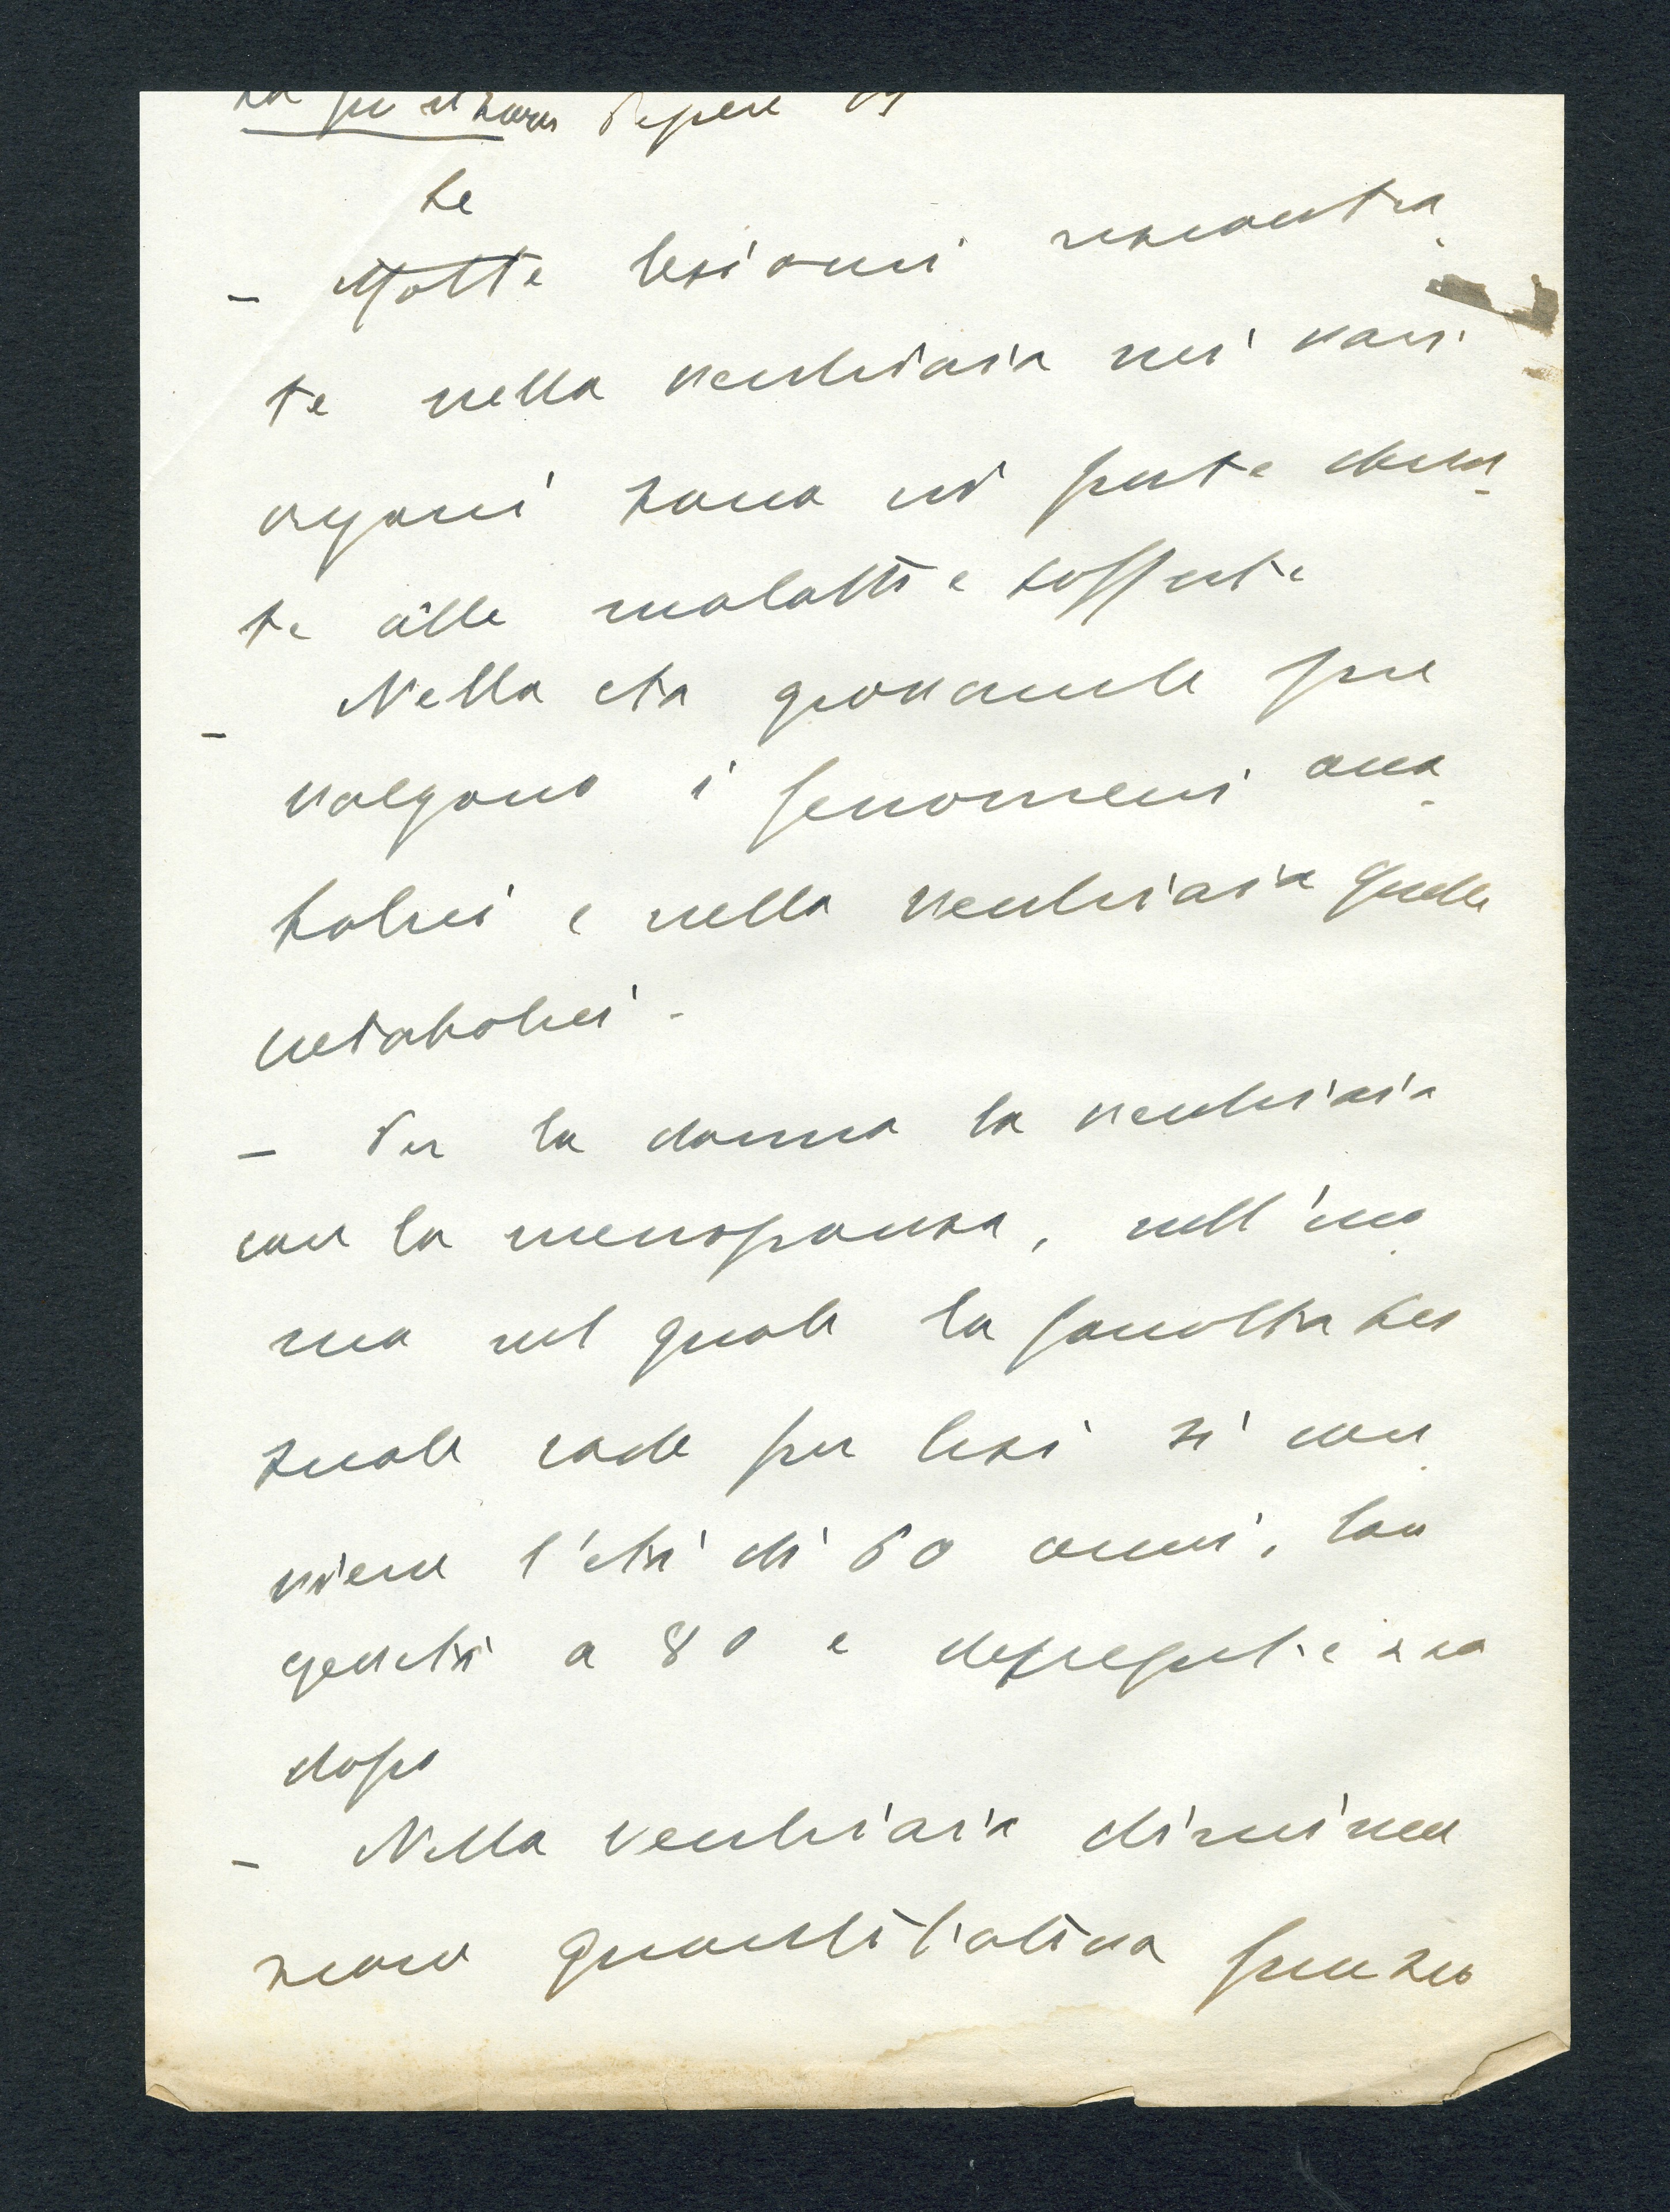 Le
- Molte lesioni riscontra
te nella vecchiaia nei vari
organi sono in parte dovu
te alle malattie sofferte
- Nella eta giovanile pre
valgono i fenomeni ana
bolici e nella vecchiaia quelli
metabolici.
- Per la donna la vecchiaia
con la menopausa, nell'uo
mo nel quale la
suale cade per lesi si con
viene l'età di 60 anni, lon
gevità a 80 e
dopo
- Nella vecchiaia diminui
scono quantitativa